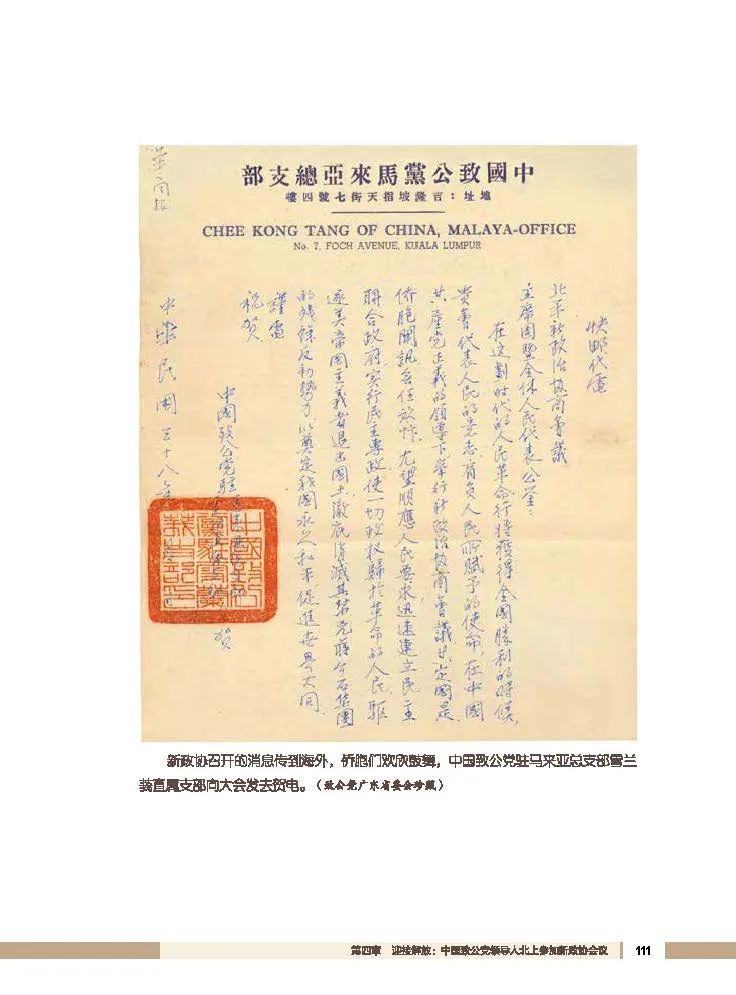 中國致公黨馬來亞總支部
地址：吉隆坡指天街七號四樓
CHEE KONG TANG OF CHINA, MALAYA-OFFICE
No. 7, FOCH AVENUE, KUALA LUMPUR
快郵代電
北平新政治协商會議
主席團暨全体人民代表公鋻：
在这劃时代的人民革命行将獲得全国勝利的時候，
貴會代表人民的意志，有负人民所赋予的使命，在中國
共産党正義的領導下舉行新政治协商會議共定國是，
侨胞聞訊自任欢忭，尤望順應人民要求迅速建立民主
聯合政府实行民主專政使一切政权歸於革命的人民，驅
逐美帝国主義者退出國土，澈底消滅其帮兇蔣介石集團
的殘餘反动勢力，以奠定我國永久和平促進世界大同，
謹電
祝賀
中國致公党駐
賀
中華民國三十八年
新政协召开的消息传到海外，侨胞们欢欣鼓舞，中国致公党驻马来亚总支部雪兰
莪直属支部向大会发去贺电。（致公党广东省委会珍藏）
第四章 迎接解放：中国致公党领导人北上参加新政协会议
111